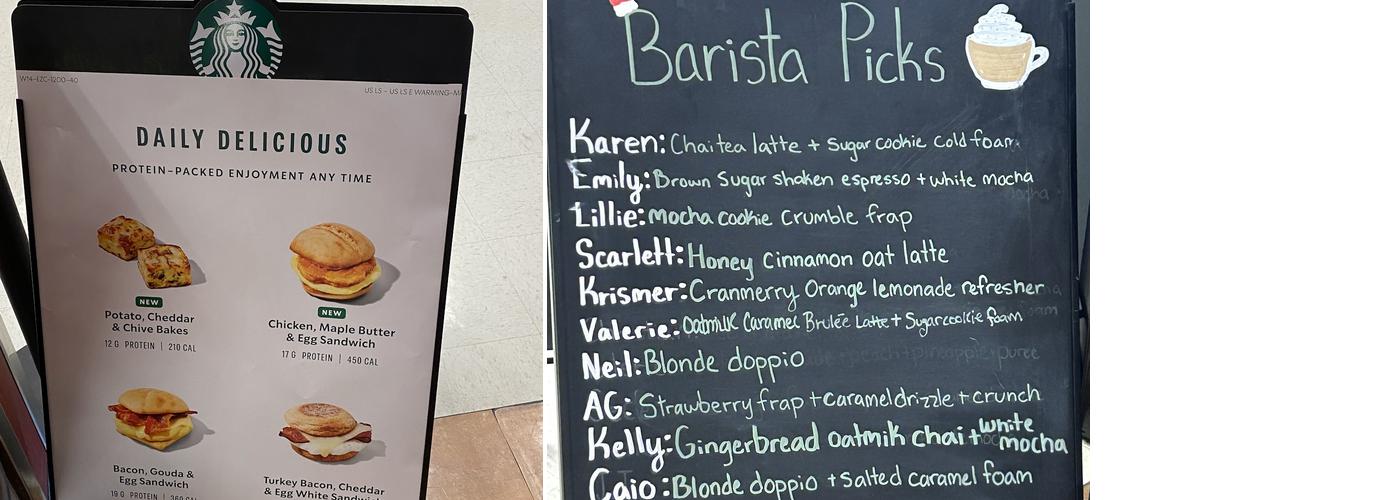 W14-EZC-1200-40
US LS - US LS E WARMING-M
DAILY DELICIOUS
PROTEIN-PACKED ENJOYMENT ANY TIME
NEW
Potato, Cheddar
& Chive Bakes
12 G PROTEIN | 210 CAL
NEW
Chicken, Maple Butter
& Egg Sandwich
17 G PROTEIN | 450 CAL
Bacon, Gouda &
Egg Sandwich
19 G PROTEIN | 360 CAL
Turkey Bacon, Cheddar
& Egg White Sandwi
Barista Picks
Karen: Chai tea latte + Sugar cookie Cold foam
Emily: Brown Sugar shaken espresso + white mocha
Lillie: mocha cookie Crumble frap
Scarlett: Honey Cinnamon oat latte
Krismer: Cranmerry Orange lemonade refresher
Valerie: Oatmilk Caramel Brulée Latte + Sugarcookie foam
Neil: Blonde doppio
peach + pineapple + puree
AG: Strawberry frap + Carameldrizzle + crunch
Kelly: Gingerbread oatmik chai + white mocha
Caio: Blonde doppio + Salted caramel foam